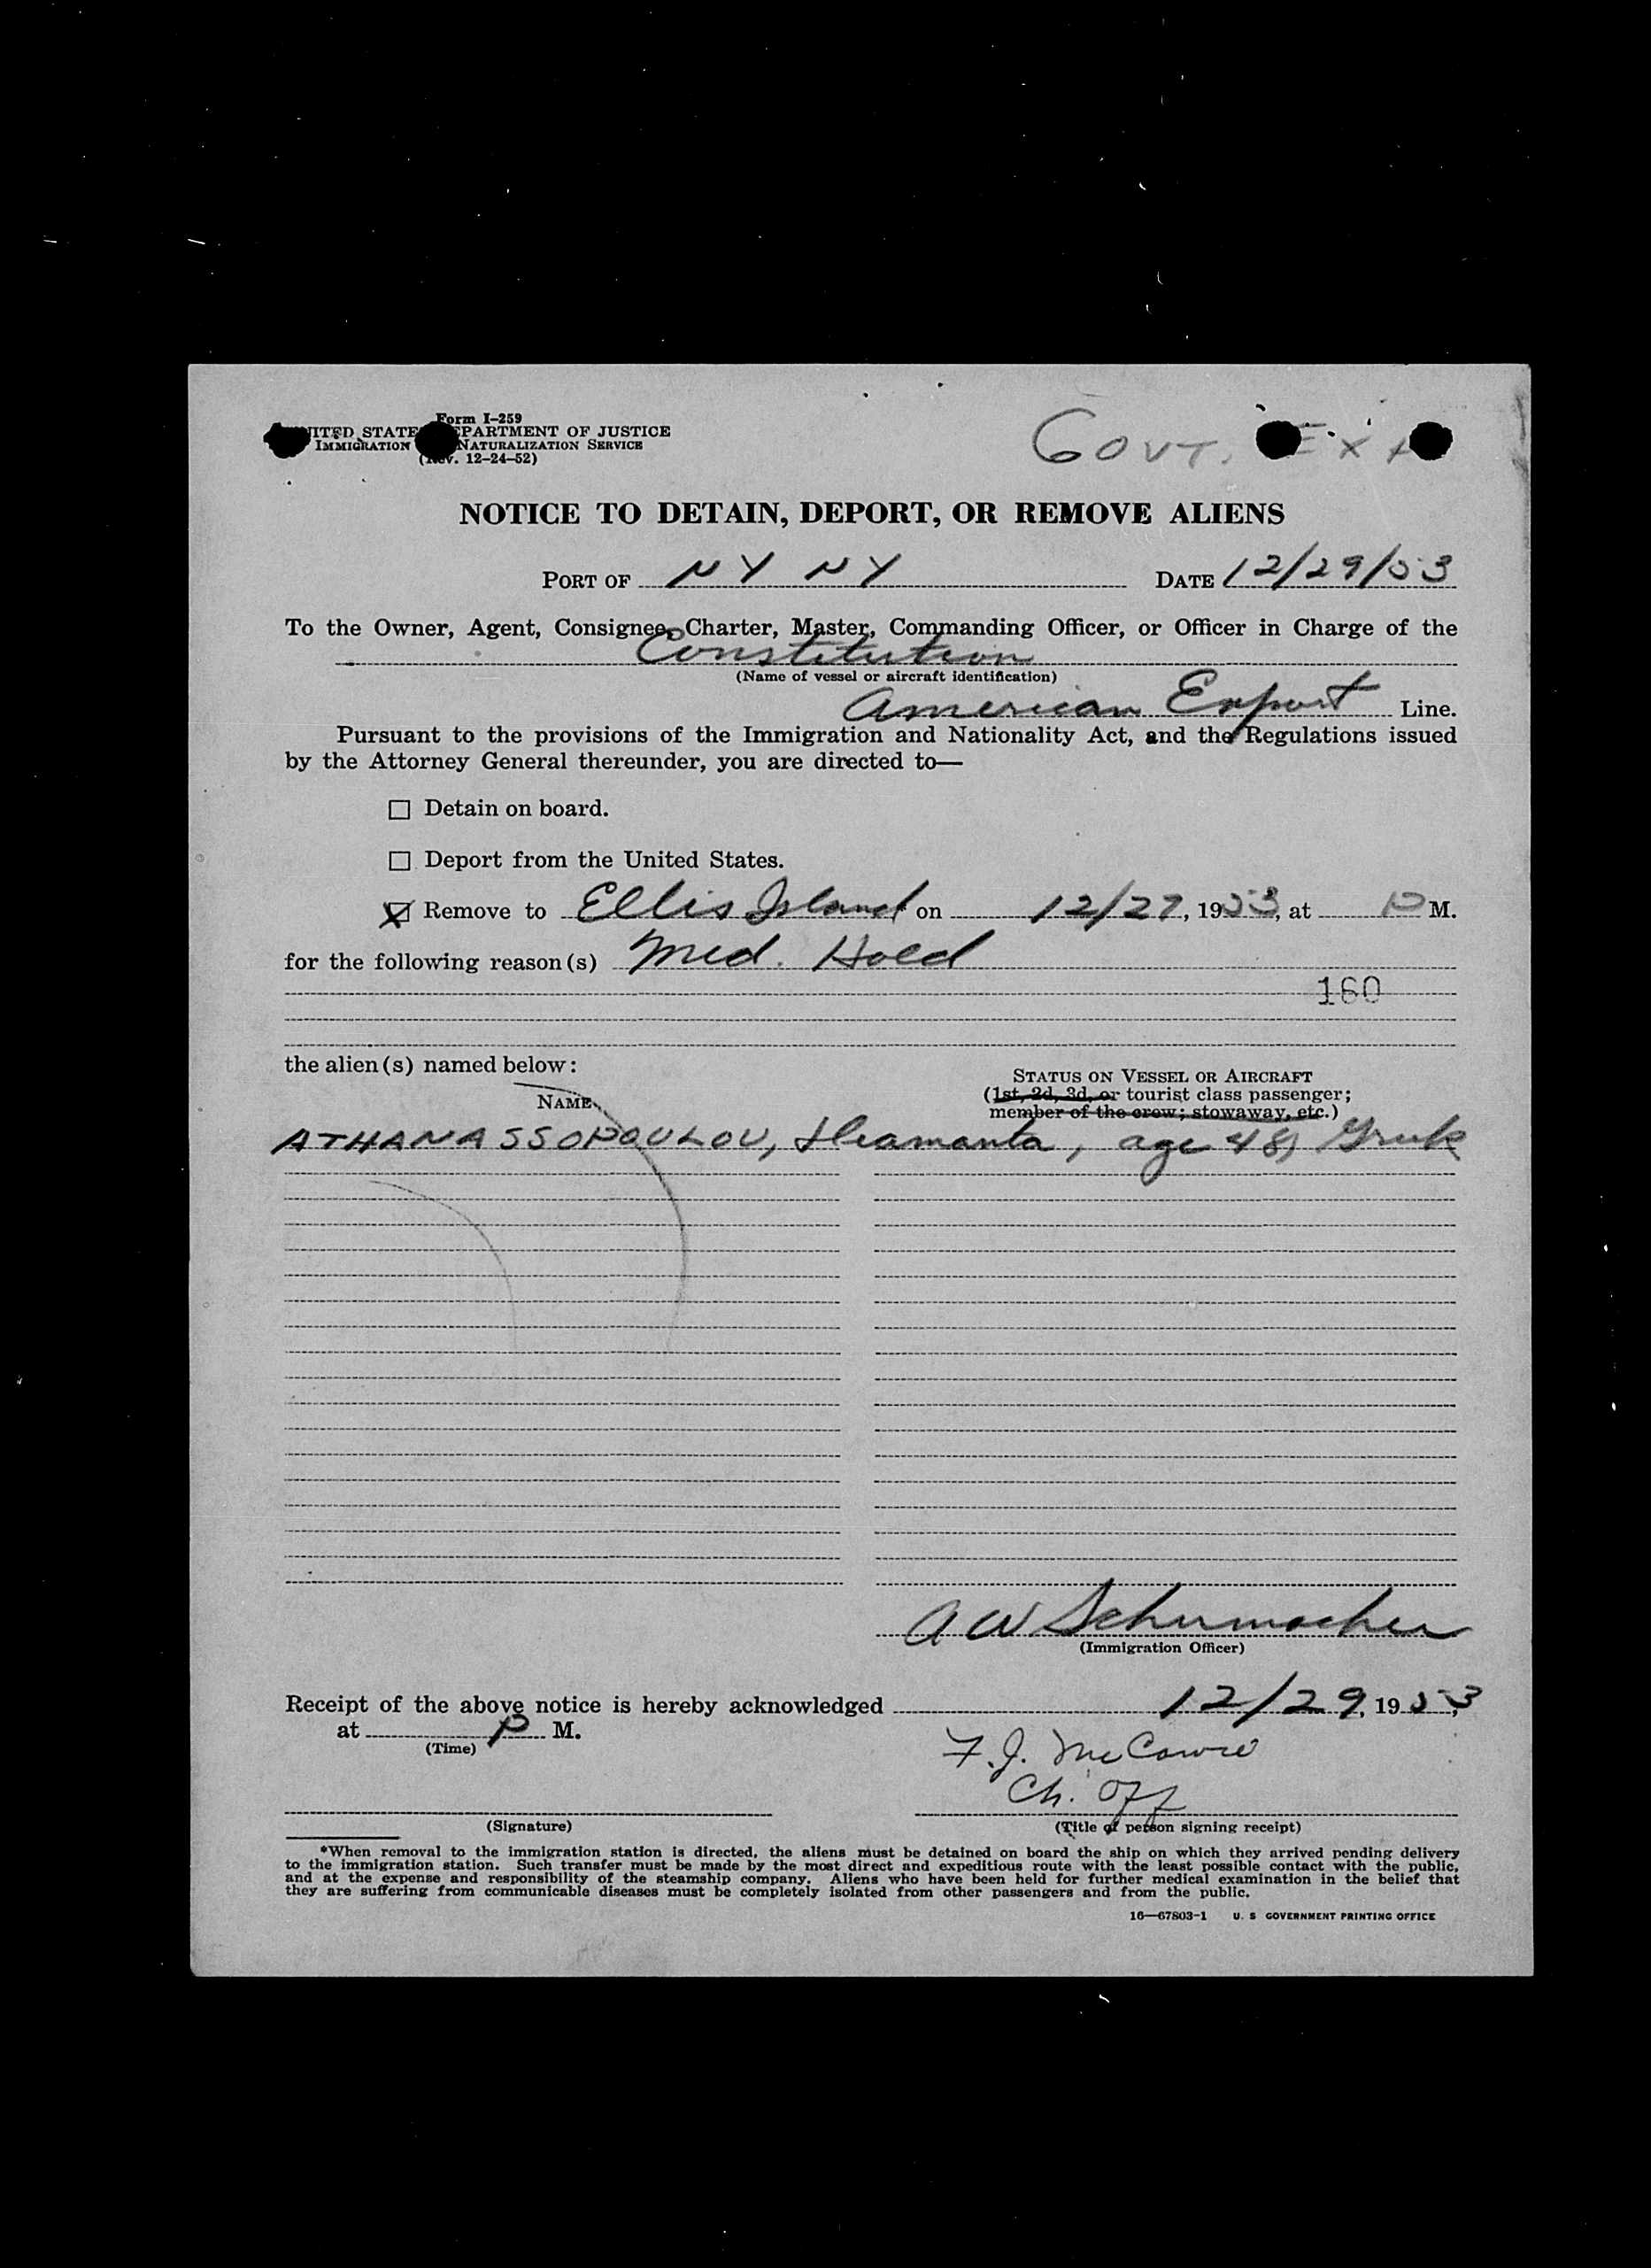 Form I-259
UNITED STATES DEPARTMENT OF JUSTICE
IMMIGRATION NATURALIZATION SERVICE
(Rev. 12-24-52)
GOVT. EX
NOTICE TO DETAIN, DEPORT, OR REMOVE ALIENS
PORT OF NY NY DATE 12/29/53
To the Owner, Agent, Consignee, Charter, Master, Commanding Officer, or Officer in Charge of the
Constitution
(Name of vessel or aircraft identification)
American Export Line.
Pursuant to the provisions of the Immigration and Nationality Act, and the Regulations issued
by the Attorney General thereunder, you are directed to—
☐ Detain on board.
☐ Deport from the United States.
☒ Remove to Ellis Island on 12/29, 1953, at P M.
for the following reason(s) Med. Hold
160
the alien(s) named below:
STATUS ON VESSEL OR AIRCRAFT
NAME
(1st, 2d, 3d, or tourist class passenger;
member of the crew; stowaway, etc.)
ATHANASSOPOULOU, Diamanta, age 48, Greek
A W Schumacher
(Immigration Officer)
Receipt of the above notice is hereby acknowledged 12/29, 1953,
at P M.
(Time)
F. J. McCowie
Ch. Off
(Signature)
(Title of person signing receipt)
*When removal to the immigration station is directed, the aliens must be detained on board the ship on which they arrived pending delivery
to the immigration station. Such transfer must be made by the most direct and expeditious route with the least possible contact with the public,
and at the expense and responsibility of the steamship company. Aliens who have been held for further medical examination in the belief that
they are suffering from communicable diseases must be completely isolated from other passengers and from the public.
16—67803-1 U. S GOVERNMENT PRINTING OFFICE